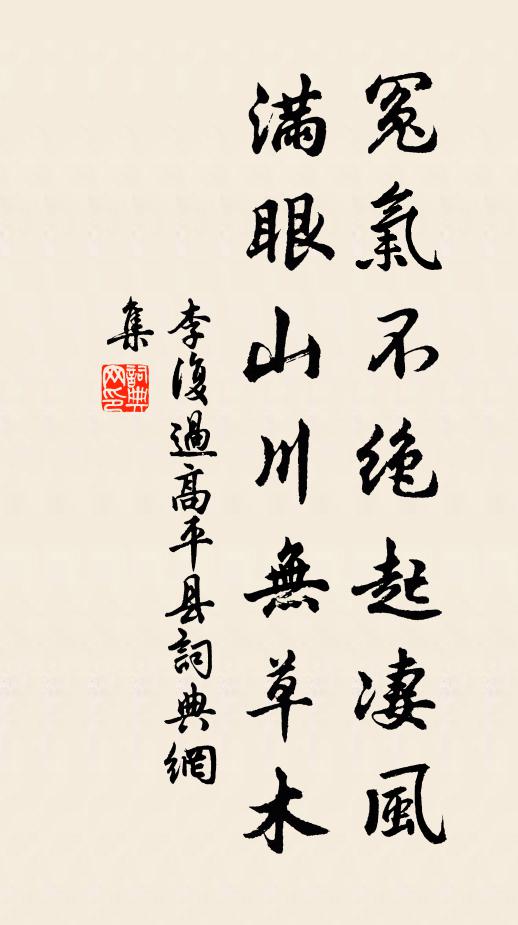 冤氣不絶起凄風
滿眼山川無草木
李復過高平县詞典網
集
詞典
网印